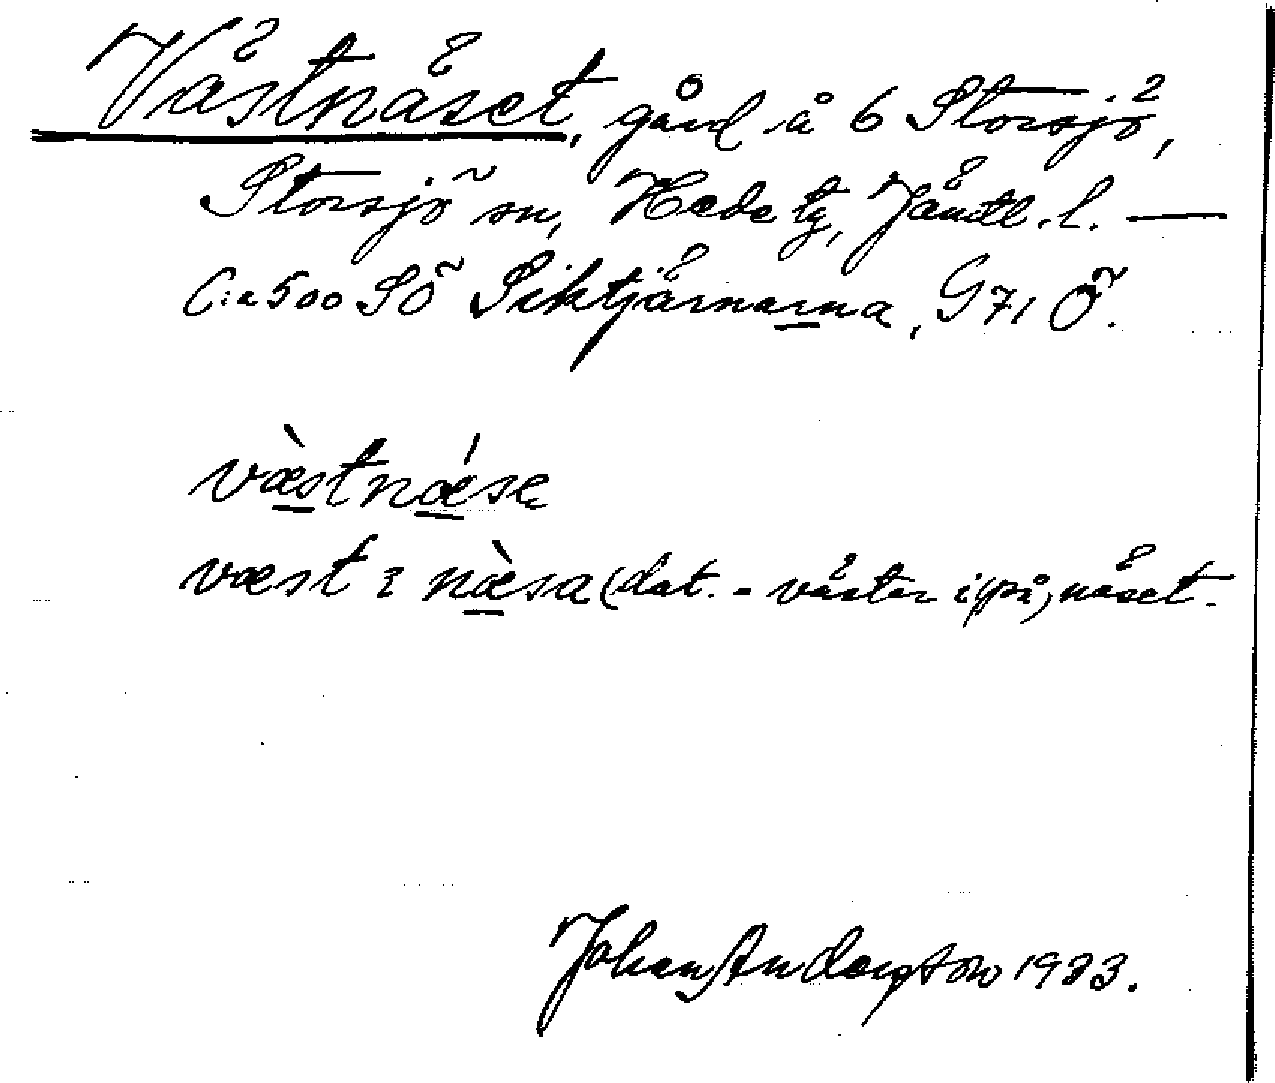 Västnäset, gård å 6 Storsjö,
Storsjö sn, Hede tg, Jämtl. l. —
C:a 500 SÖ Siktjärnarna, G 71 Ö.
væ̀stnǽsɛ
væst i næ̀sa (dat. - väster i (på) näset.
Johan Anderzson 1933.